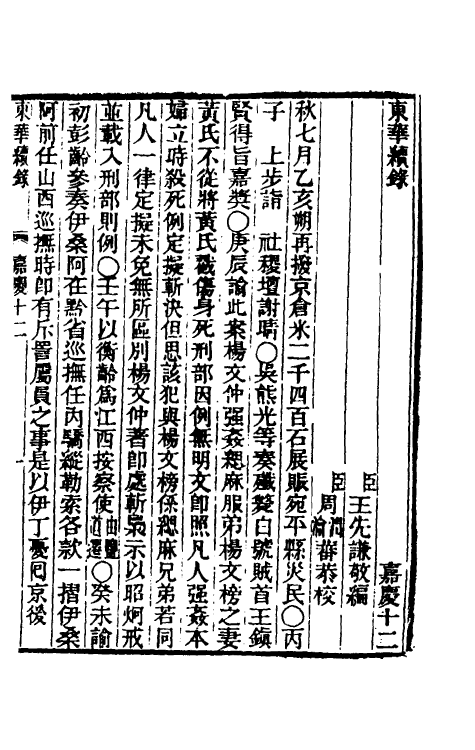 東華續錄 嘉慶十二
臣王先謙敬編
臣周潤蕃周瀹蕃恭校
秋七月乙亥朔再撥京倉米二千四百石展賑宛平縣災民○丙
子 上步詣 社稷壇謝晴○吳熊光等奏殲斃白號賊首王鎮
賢得旨嘉獎○庚辰諭此案楊文仲强姦緦麻服弟楊文榜之妻
黃氏不從將黃氏戳傷身死刑部因例無明文卽照凡人强姦本
婦立時殺死例定擬斬決但思該犯與楊文榜係緦麻兄弟若同
凡人一律定擬未免無所區別楊文仲著卽處斬梟示以昭炯戒
並載入刑部則例○壬午以衡齡爲江西按察使由鹽道遷○癸未諭
初彭齡參奏伊桑阿在黔省巡撫任內驕縱勒索各款一摺伊桑
阿前任山西巡撫時卽有斥詈屬員之事是以伊丁憂囘京後
東華續錄 嘉慶十二 一